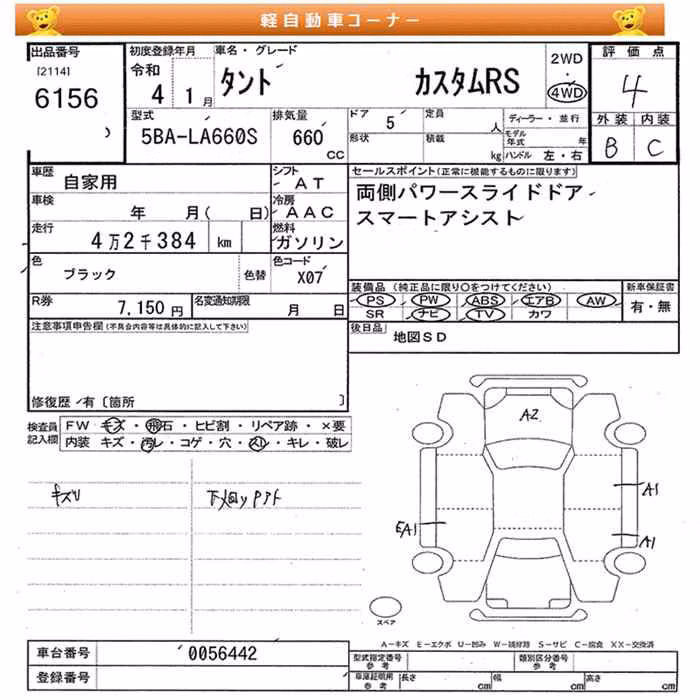 軽自動車コーナー
出品番号
[2114]
6156
初度登録年月
令和
4 1月
車名・グレード
タント カスタムRS
2WD
・
4WD
評価点
4
外装 内装
B C
型式
5BA-LA660S
排気量
660
CC
ドア 5
形状
定員 人
積載 kg
ディーラー・並行
モデル年式 年
ハンドル 左・右
車歴 自家用
シフト AT
車検 年 月( 日)
冷房 AAC
走行 4万2千384 km
燃料 ガソリン
色 ブラック 色替
色コード X07
R券 7,150円
名変通知期限 月 日
セールスポイント(正常に機能するものに限ります)
両側パワースライドドア
スマートアシスト
装備品(純正品に限り○をつけてください)
新車保証書
PS PW ABS エアB AW
SR ナビ TV カワ
有・無
後日品 地図SD
注意事項申告欄(不具合内容等は具体的に記入して下さい)
修復歴/有〔箇所 〕
検査員
記入欄
FW キズ・飛石・ヒビ割・リペア跡・×要
内装 キズ・汚レ・コゲ・穴・スレ・キレ・破レ
キズリ
A2
A1
EA1
A1
スペア
A-キズ E-エクボ U-凹み W-補修跡 S-サビ C-腐食 XX-交換済
車台番号 0056442
登録番号
型式指定番号
参考
類別区分番号
参考
車庫証明用
参考
長さ cm
幅 cm
高さ cm